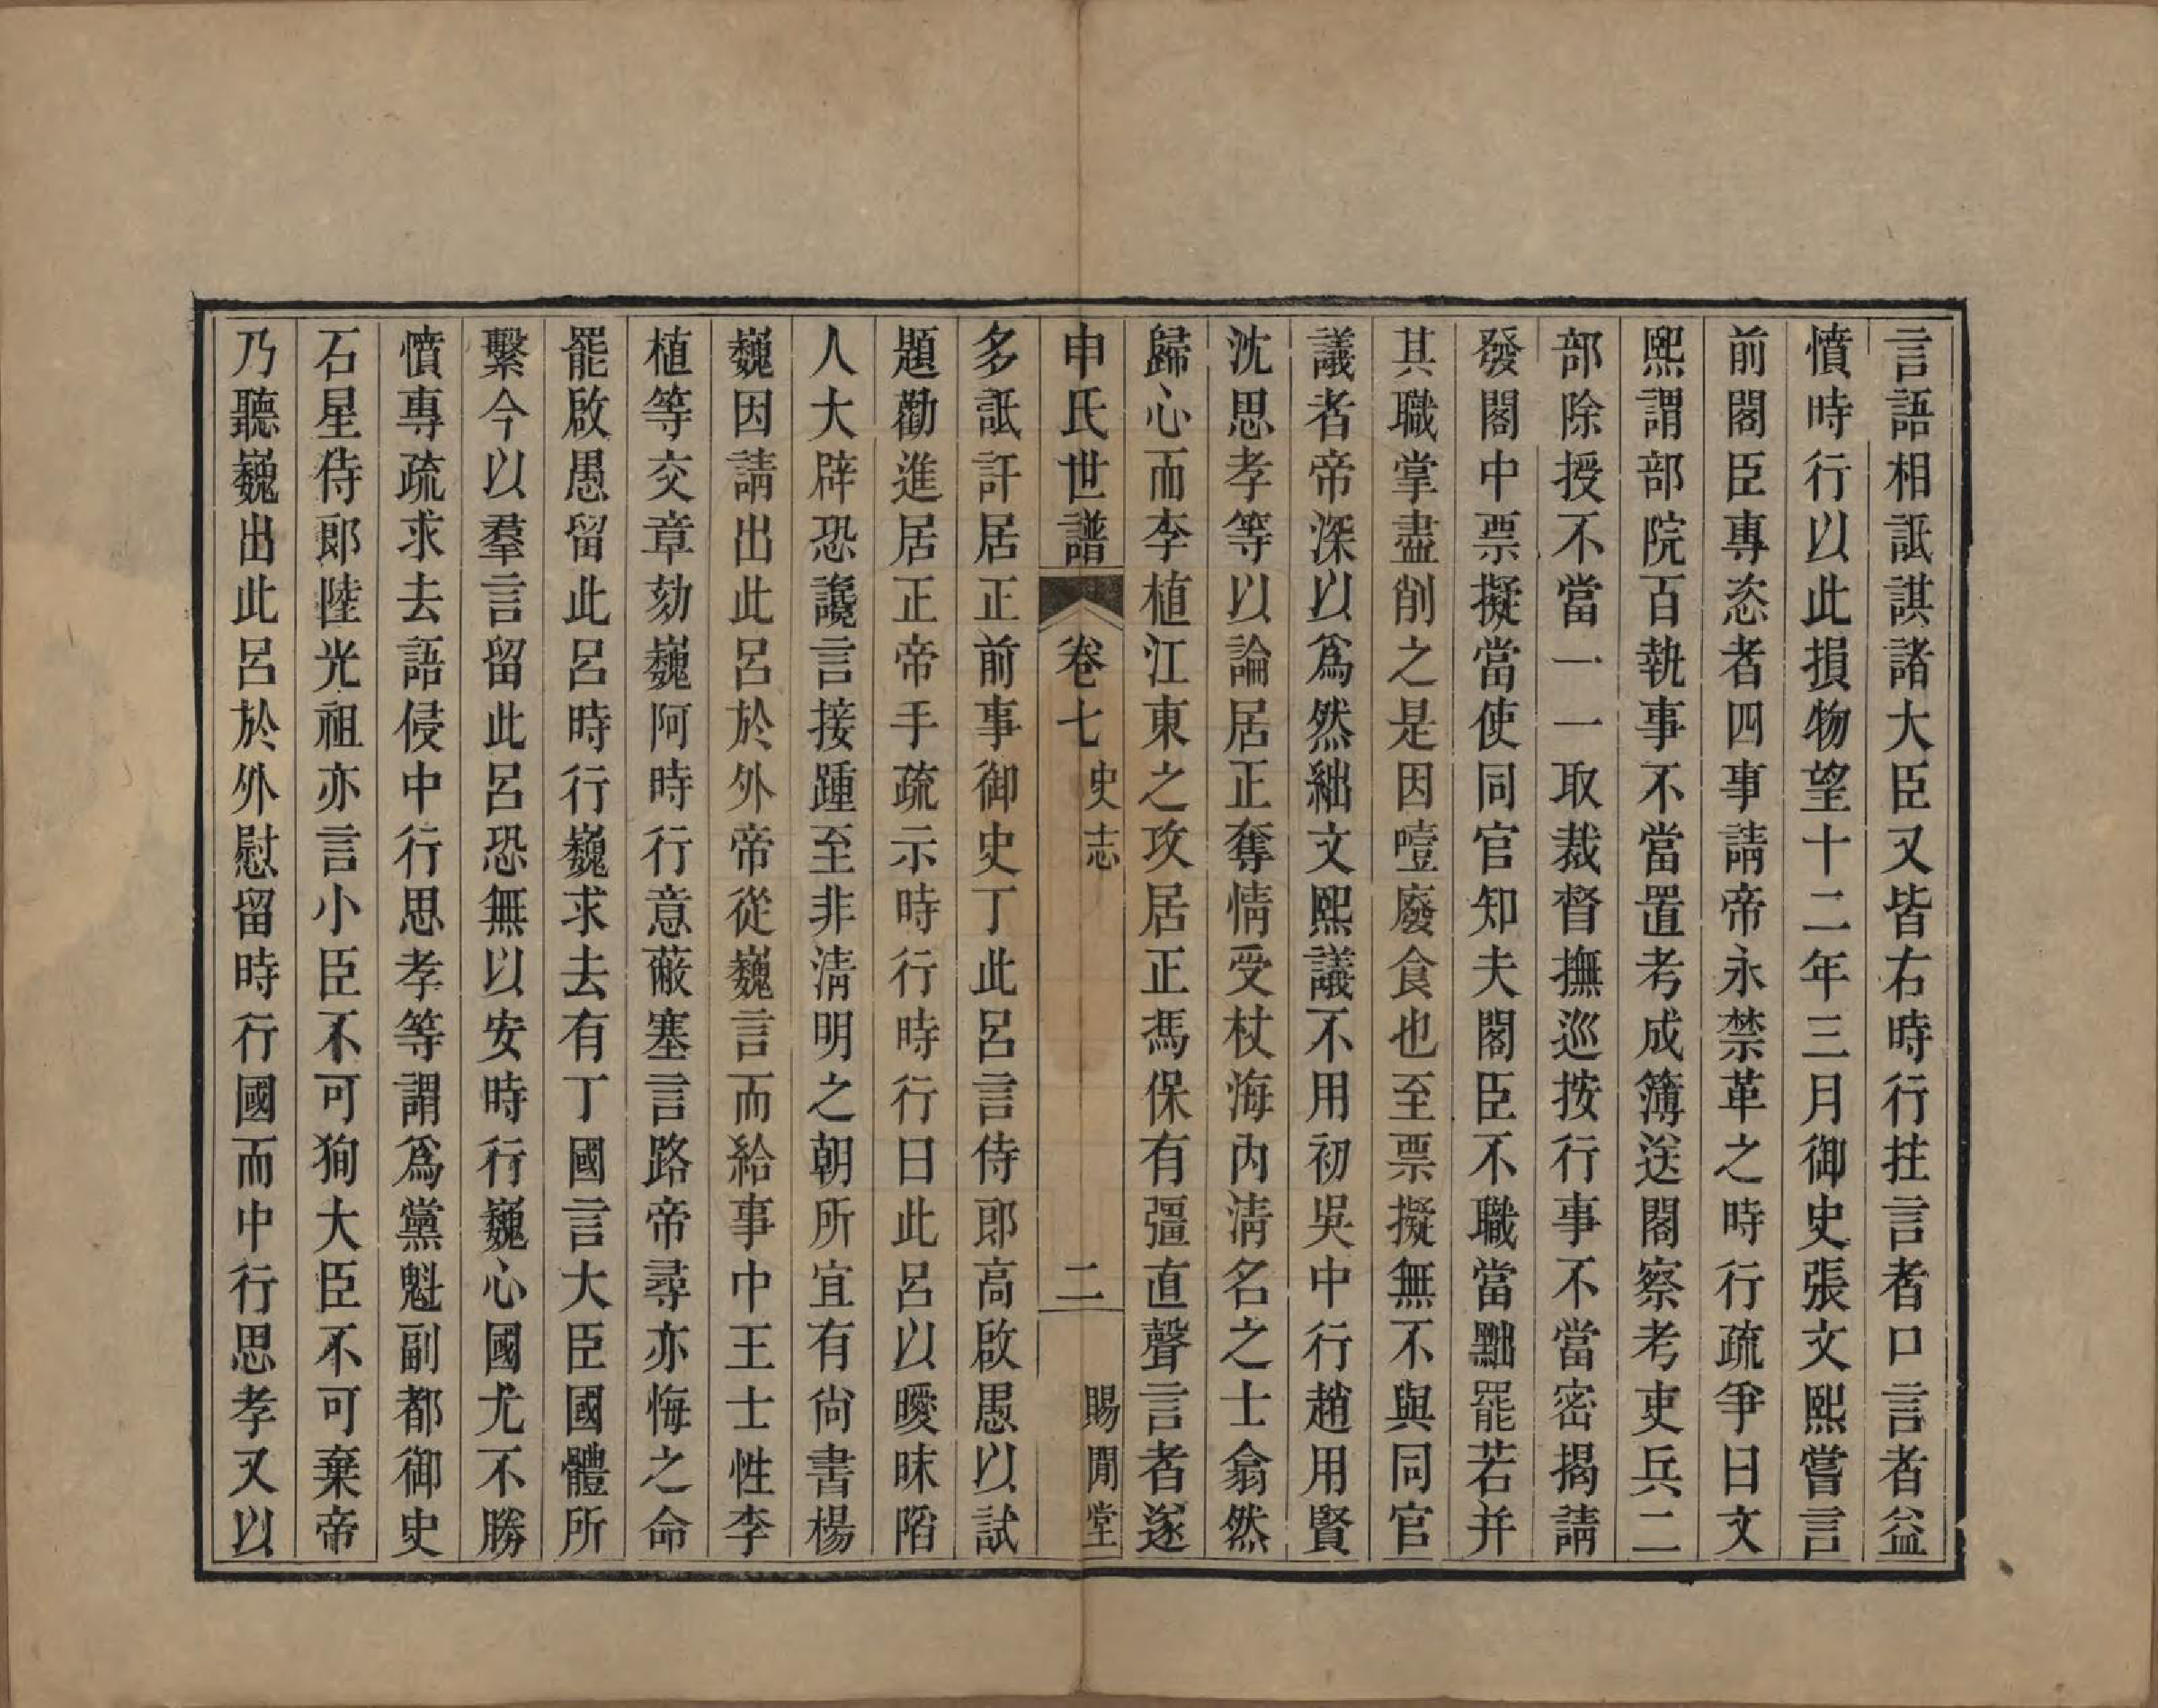 言語相詆諆諸大臣又皆右時行拄言者口言者益
憤時行以此損物望十二年三月御史張文熙嘗言
前閣臣專恣者四事請帝永禁革之時行疏爭曰文
熙謂部院百執事不當置考成簿送閣察考吏兵二
部除授不當一一取裁督撫巡按行事不當密揭請
發閣中票擬當使同官知夫閣臣不職當黜罷若并
其職掌盡削之是因噎廢食也至票擬無不與同官
議者帝深以爲然絀文熙議不用初吳中行趙用賢
沈思孝等以論居正奪情受杖海內淸名之士翕然
歸心而李植江東之攻居正馮保有彊直聲言者遂
申氏世譜 卷七 史志 二 賜閒堂
多詆訐居正前事御史丁此呂言侍郎高啟愚以試
題勸進居正帝手疏示時行時行曰此呂以曖昧陷
人大辟恐讒言接踵至非淸明之朝所宜有尙書楊
巍因請出此呂於外帝從巍言而給事中王士性李
植等交章劾巍阿時行意蔽塞言路帝尋亦悔之命
罷啟愚留此呂時行巍求去有丁國言大臣國體所
繫今以羣言留此呂恐無以安時行巍心國尤不勝
憤專疏求去語侵中行思孝等謂爲黨魁副都御史
石星侍郎陸光祖亦言小臣不可狥大臣不可棄帝
乃聽巍出此呂於外慰留時行國而中行思孝又以